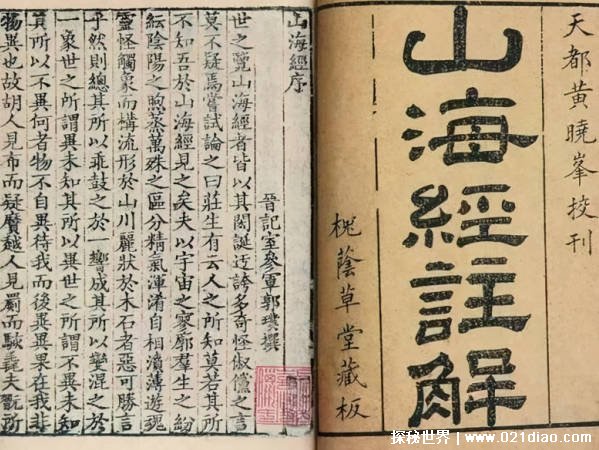 天都黃曉峯挍刊
山海經註解
槐蔭草堂藏板
山海經序
晉記室參軍郭璞撰
世之覽山海經者皆以其閎誕迂誇多奇怪俶儻之言
莫不疑焉嘗試論之曰莊生有云人之所知莫若其所
不知吾於山海經見之矣夫以宇宙之寥廓羣生之紛
紜陰陽之煦蒸萬殊之區分精氣渾淆自相濆薄遊魂
靈怪觸象而構流形於山川麗狀於木石者惡可勝言
乎然則總其所以乖鼓之於一響成其所以變混之於
一象世之所謂異未知其所以異世之所謂不異未知
其所以不異何者物不自異待我而後異異果在我非
物異也故胡人見布而疑黂越人見罽而駭毳夫翫所
探秘世界@www.021diao.com